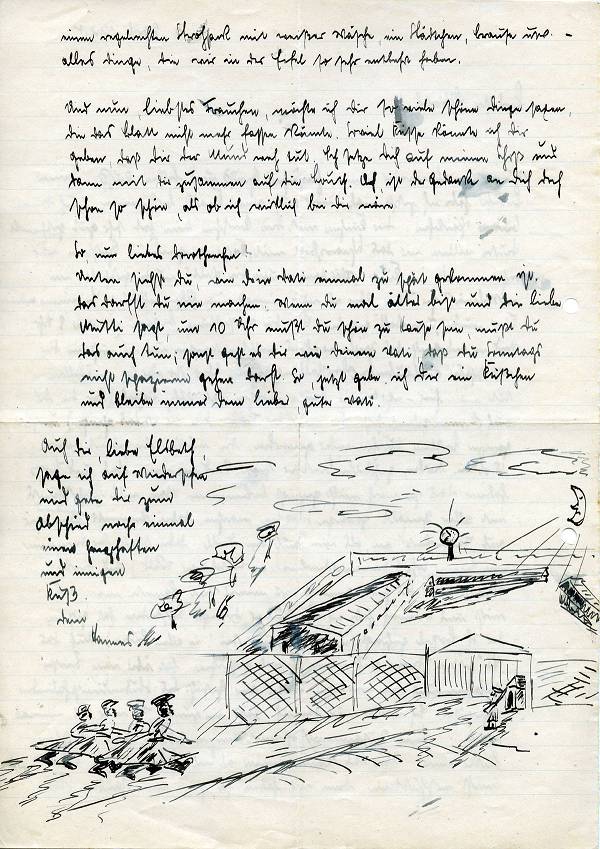 einen regelrechten Strohsack mit weißer Wäsche, ein Städtchen, Brause usw. –
alles Dinge, die wir in der Eifel so sehr entbehrt haben.
Und nun liebstes Frauchen, möchte ich dir so viele schöne Dinge sagen,
die das Blatt nicht mehr fassen könnte. Soviel Küsse könnte ich dir
geben, daß dir der Mund noch tut. Ich setze dich auf meinen Schoß und
dann mit dir zusammen auf die Couch. Ach ist der Gedanke an dich doch
schon so schön, als ob ich wirklich bei dir wäre
So, nun liebes Dorotheechen!
Unten siehst du, wie dein Vati einmal zu spät gekommen ist.
Das darfst du nie machen. Wenn du mal älter bist und die liebe
Mutti sagt, um 10 Uhr mußt du schon zu Hause sein, mußt du
das auch tun; sonst geht es dir wie deinem Vati, daß du Sonntags
nicht spazieren gehen darfst. So, jetzt gebe ich dir ein Küßchen
und bleibe immer dein lieber, guter Vati.
Auch dir, liebe Elsbeth,
sage ich auf Wiedersehen
und gebe dir zum
Abschied noch einmal
einen herzhaften
und innigen
Kuß.
Dein
Hannes